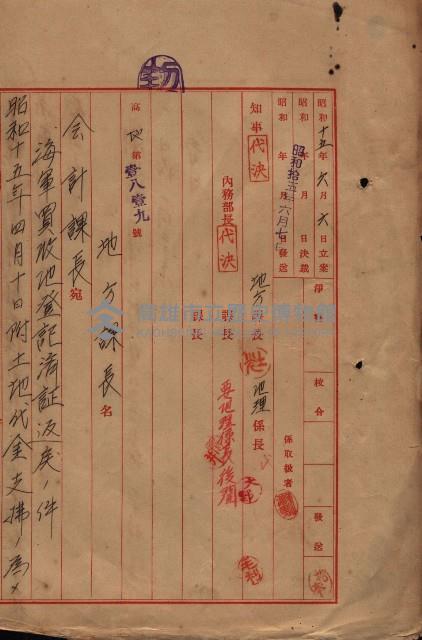 昭和十五年六月六日立案
昭和 年 月 日決裁
昭和 年 月 日發送
昭和拾五年六月七日
淨書
校合
發送
係取扱者
知事 代決
地方課長
地理係長
內務部長 代決
課長
課長
要地理係長後閱
高地第壹八壹九號
地方課長名
会計課長宛
海軍買收地登記済証返戻ノ件
昭和十五年四月十日附土地代金支拂ノ為メ
高雄市立歷史博物館